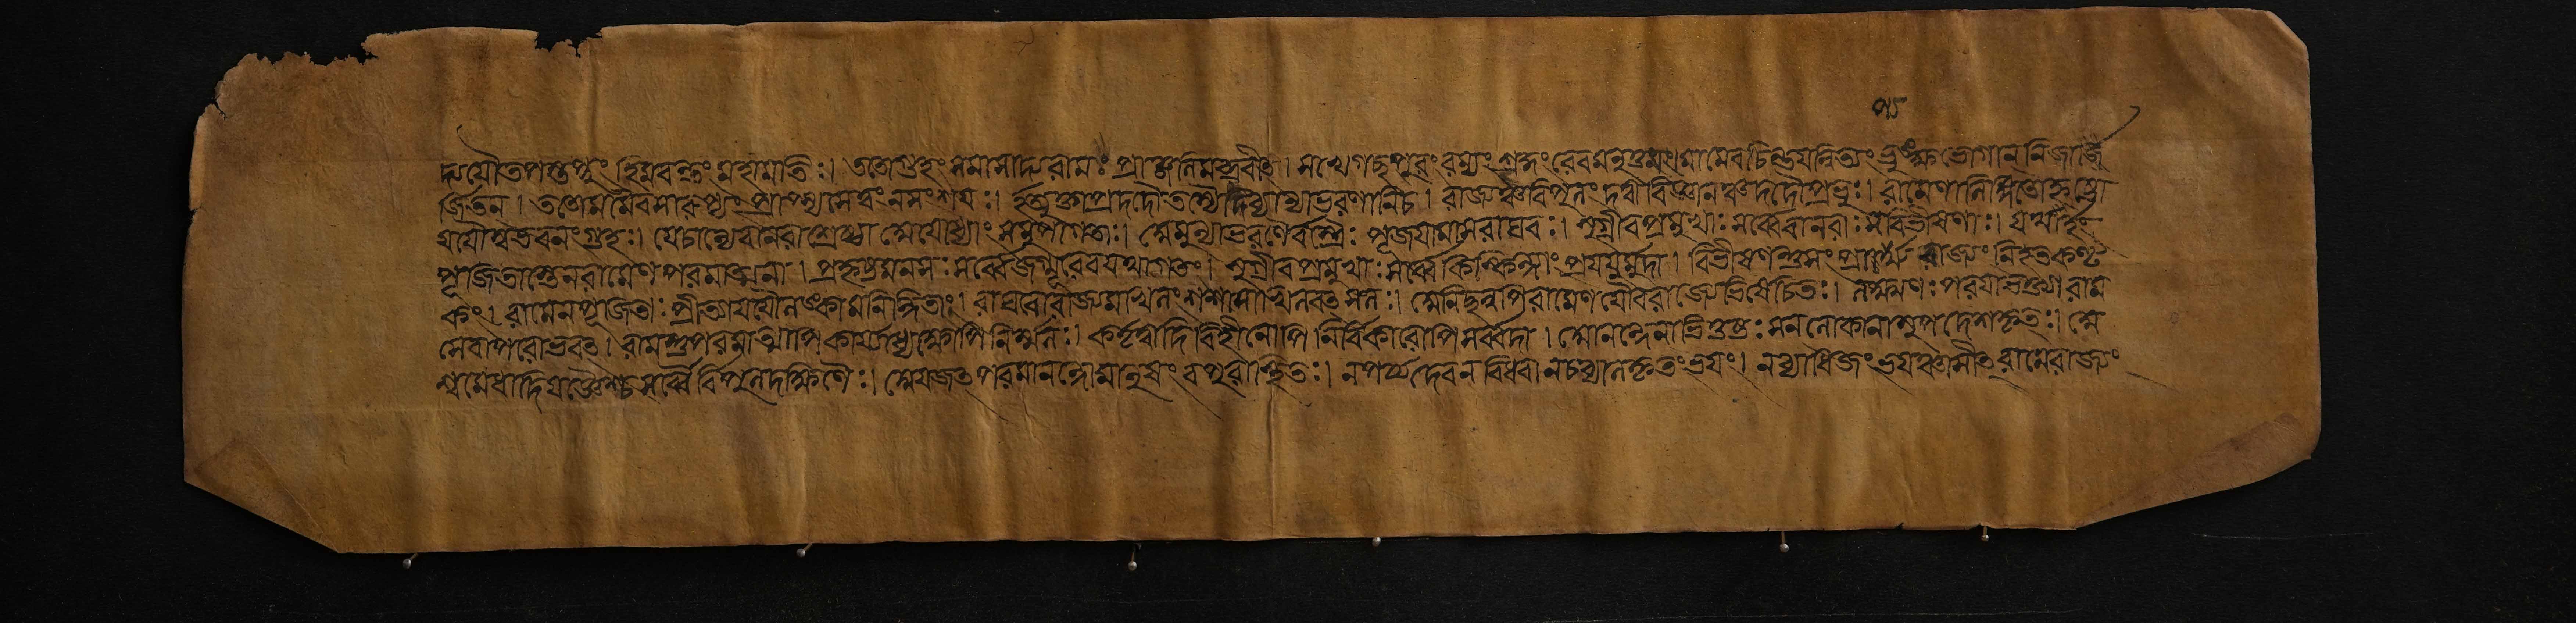 দ্যযৌতপস্তপ্তুং হিমবন্তং মহামতিঃ। ততোগুহং সমাসাদ্যরামঃ প্রাঞ্জলিমব্রবীৎ। সখেগচ্ছপুরং রম্যং শৃঙ্গবেরমনুত্তমং। মামেবচিন্তয়ন্নিত্যং ভুঙ্ক্ষ্বভোগান্নিজার্জি
র্জিতান। অন্তেমমৈবসারূপ্যং প্রাপ্স্যসেত্বং নসংশয়ঃ। ইত্যুক্ত্বাপ্রদদৌতস্মৈদিব্যান্যাভরণানিচ। রাজ্যঞ্চবিপুলং দত্ত্বাবিজ্ঞানঞ্চদদৌপ্রভুঃ। রামেণালিঙ্গিতোহৃষ্টো
যযৌস্বভবনং গুহঃ। যেচান্যেবানরাশ্রেষ্ঠা অযোধ্যাং সমুপাগতাঃ। অমূল্যাভরণৈর্বস্ত্রৈঃ পূজয়ামাসরাঘবঃ। সুগ্রীবপ্রমুখাঃ সর্ব্বেবানরাঃ সবিভীষণাঃ। যথার্হং
পূজিতাস্তেনরামেণপরমাত্মনা। প্রহৃষ্টমনসঃ সর্ব্বেজগ্মুরেবযথাগতং। সুগ্রীবপ্রমুখাঃ সর্ব্বে কিষ্কিন্ধাং প্রযযুর্মুদা। বিভীষণস্তুসংপ্রাপ্য রাজ্যং নিহতকণ্ট
কং। রামেনপূজিতঃ প্রীত্যাযযৌলঙ্কামনিন্দিতঃ। রাঘবোরাজ্যমখিলং শশাসাখিলবৎসলঃ। অনিচ্ছন্নপিরামেণযৌবরাজ্যেভিষেচিতঃ। লক্ষ্মণঃ পরয়াভক্ত্যা রাম
সেবাপরোভবৎ। রামস্তুপরমাত্মাপি কার্য্যাধ্যক্ষোপিনির্ম্মলঃ। কর্তৃত্বাদিবিহীনোপি নির্বিকারোপিসর্ব্বদা। আনন্দেনাভিতুষ্টঃ সনলোকানামুপদেশকৃত্ঃ। অ
শ্বমেধাদিযজ্ঞৈশ্চসর্ব্বৈর্বিপুলদক্ষিণৈঃ। অযজৎপরমানন্দোমানুষং বপুরাশ্রিতঃ। নপর্য্যদেবনবিধবা নচব্যালকৃতংভয়ং। নব্যাধিজং ভয়ঞ্চাসীৎ রামেরাজ্যং